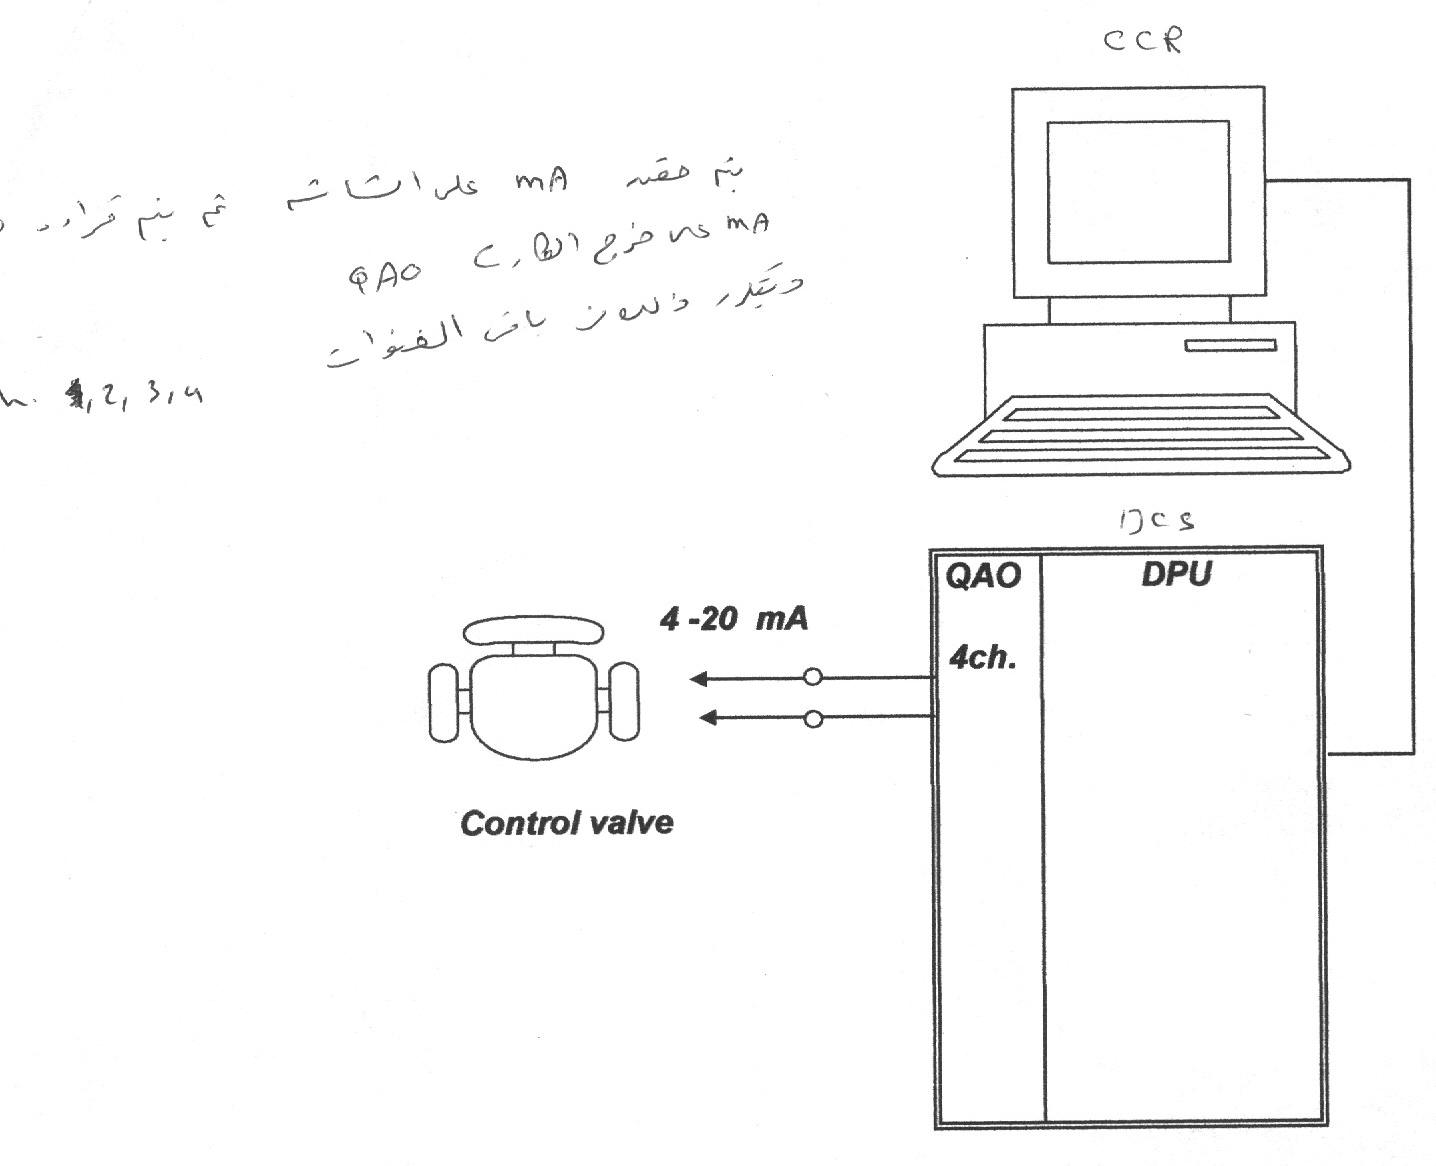 CCR
يتم حقن mA على الشاشه ثم يتم قراءه
mA على خرج الكارت QAO
ويتكرر ذلك من باقى القنوات
1, 2, 3, 4
DCS
QAO DPU
4 -20 mA
4ch.
Control valve